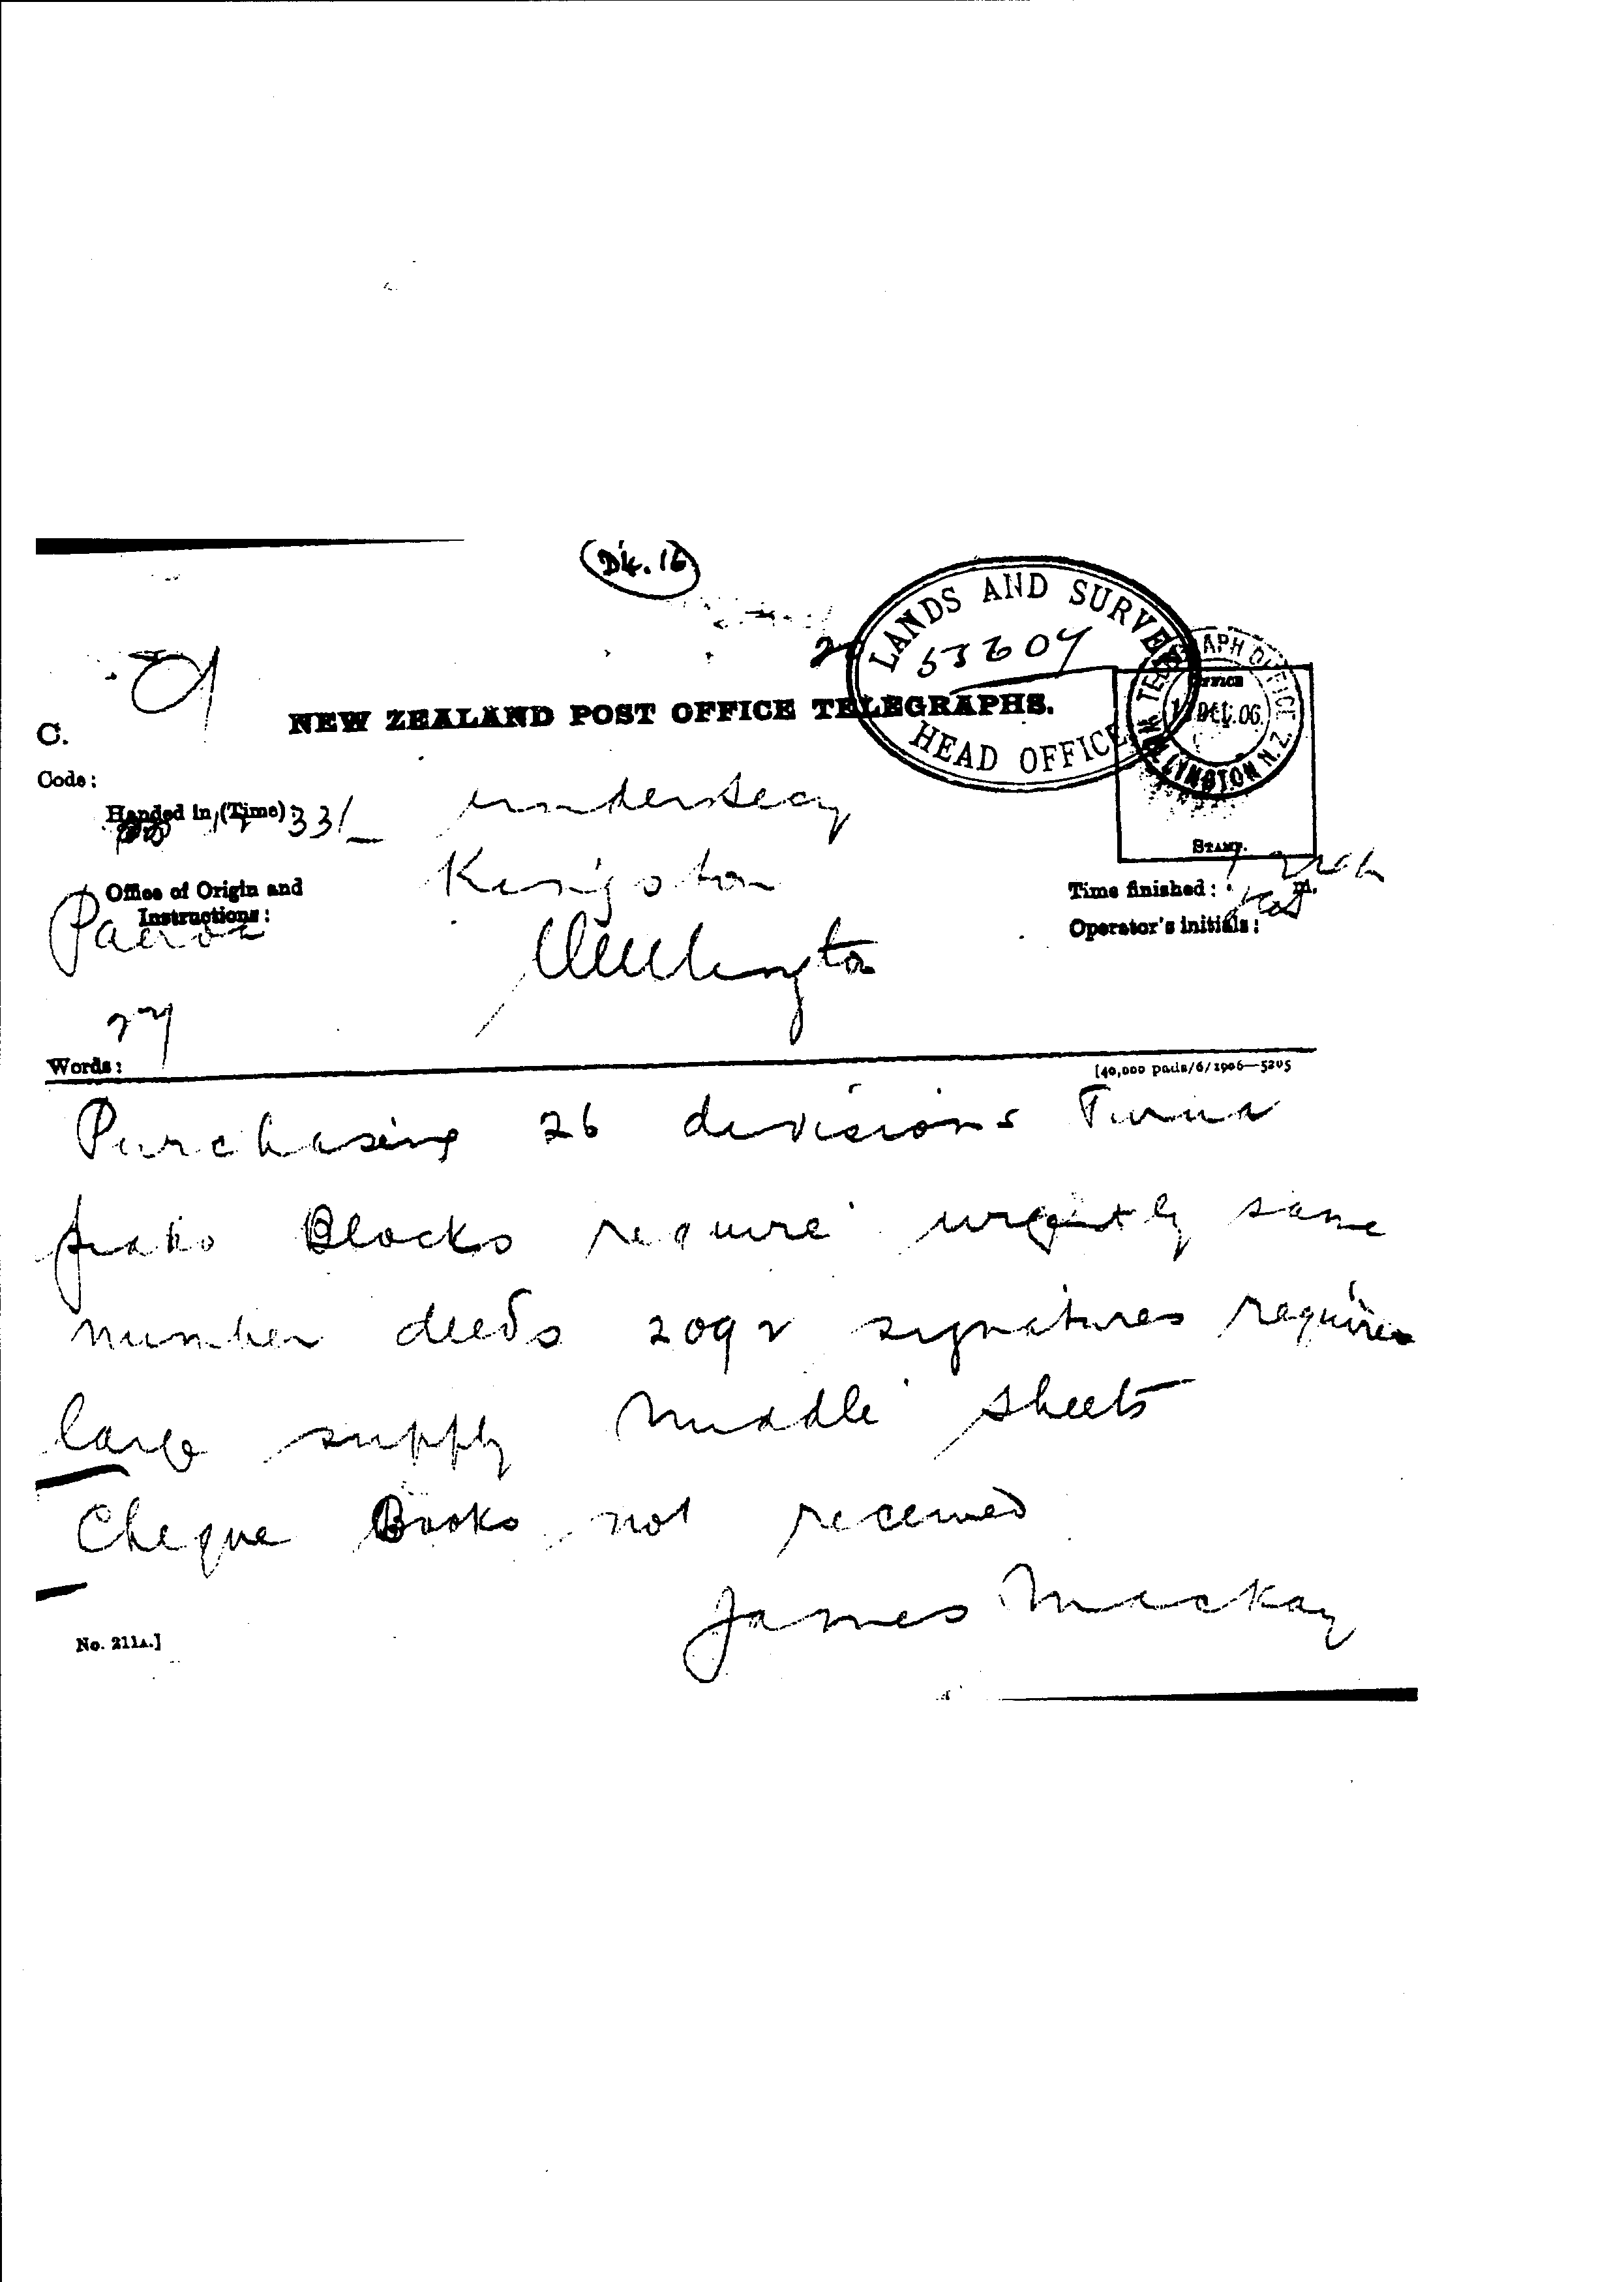 LANDS AND SURVEY
HEAD OFFICE
TELEGRAPH OFFICE
WELLINGTON N.Z.
DEC. 06
C.
NEW ZEALAND POST OFFICE TELEGRAPHS.
Code:
Handed in (Time):
undersecy
STAMP.
Office of Origin and
Instructions:
Paeroa
Kingston
Wellington
Time finished: m.
Operator's initials:
27
Words:
[40,000 pads/6/1906—5205
Purchasing 26 divisions Turua
piako Blocks require urgently same
number deeds 2092 signatures require
large supply middle sheets
Cheque Books not received
James Mackay
No. 211A.]